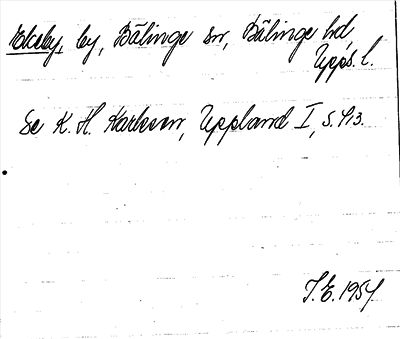 Ekeby, by, Bälinge sn, Bälinge hd,
Upps. l.
Se K. H. Karlsson, Uppland I, s. 413.
J. E. 1954.